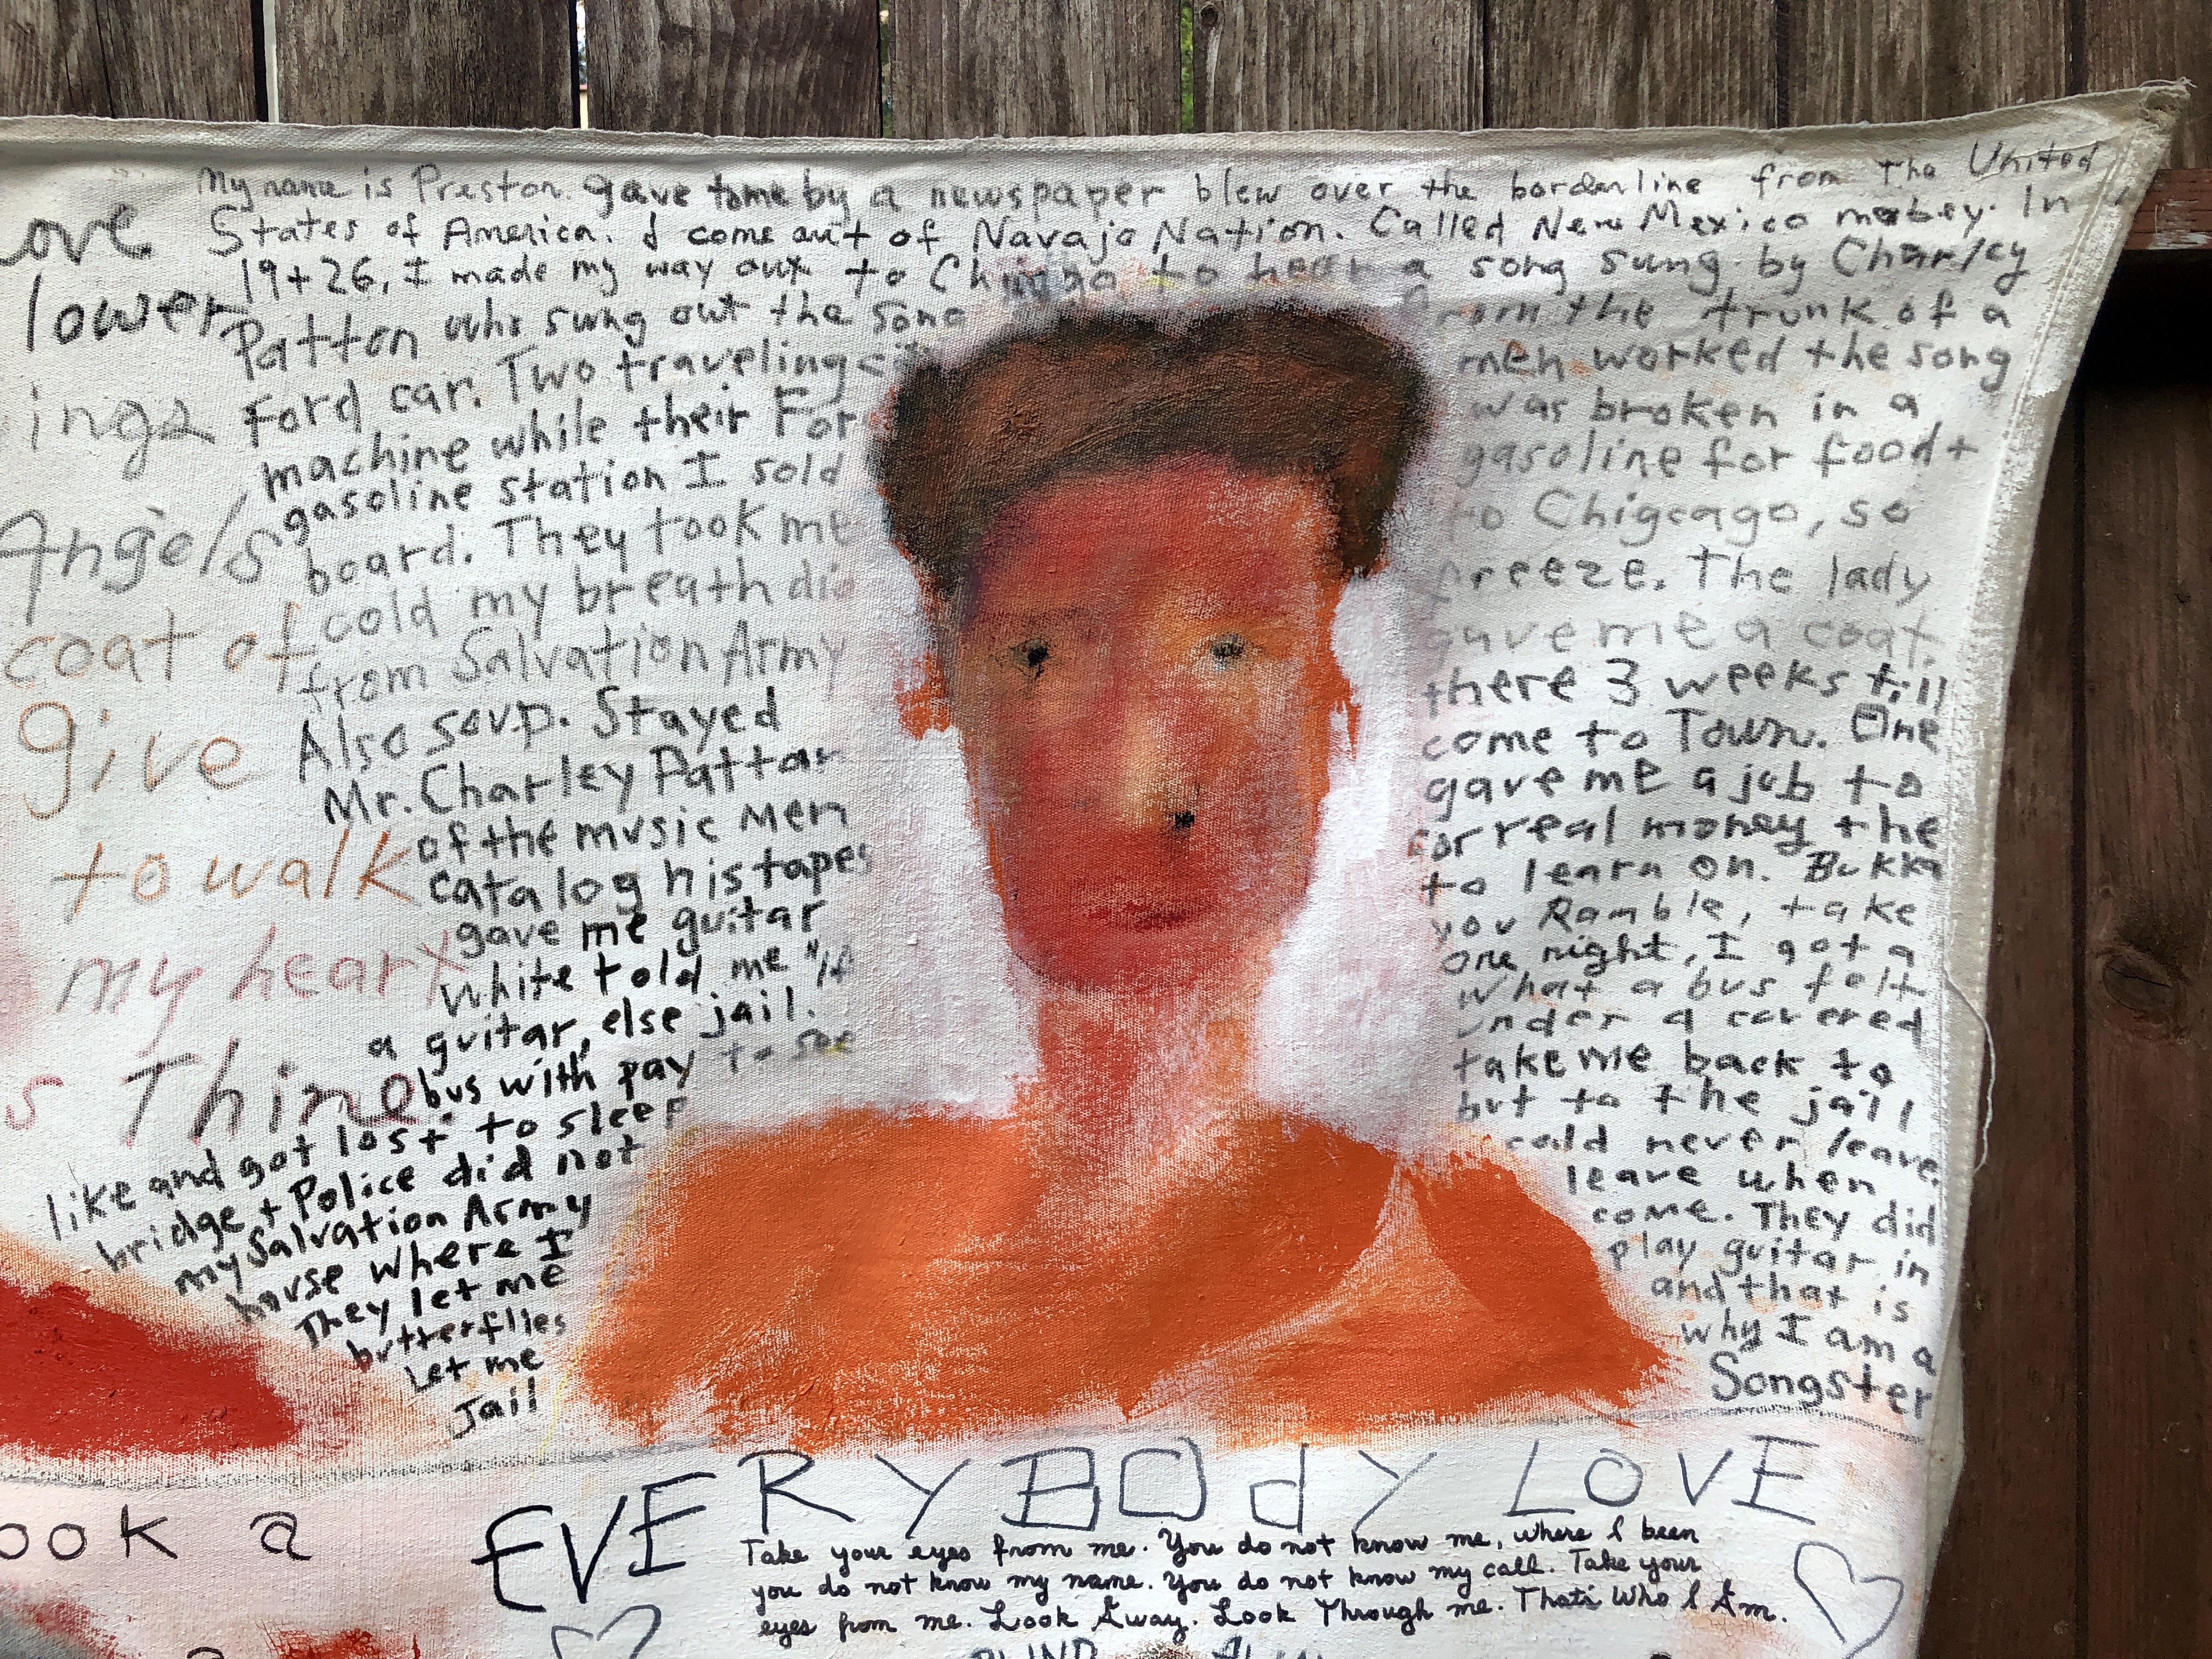 My name is Preston. gave to me by a newspaper blew over the borderline from The United
States of America. I come out of Navajo Nation. Called New Mexico mabey. In
19+26, I made my way out to to hear a song sung by Charley
Patton who sung out the song from the trunk of a
Ford car. Two traveling men worked the song
machine while their For was broken in a
gasoline station I sold gasoline for food +
board. They took me to Chigcago, so
cold my breath did freeze. The lady
from Salvation Army gave me a coat.
Also soup. Stayed there 3 weeks till
Mr. Charley Patton come to Town. One
of the music men gave me a job to
catalog his tapes for real money + he
gave me guitar to learn on. Bukka
White told me "If you Ramble, take
a guitar, else jail. one night, I got a
bus with pay to see what a bus felt
like and got lost to sleep under a covered
bridge + Police did not take me back to
my Salvation Army but to the jail
house where I cold never leave.
They let me leave when
butterflies come. They did
Let me play guitar in
Jail and that is
why I am a
Songster
ove
lower
ings
Angels
coat of
give
to walk
my heart
s Thing
ook a
EVERYBODY LOVE
Take your eyes from me. You do not know me, where I been
you do not know my name. You do not know my call. Take your
eyes from me. Look Away. Look Through me. That's Who I Am.